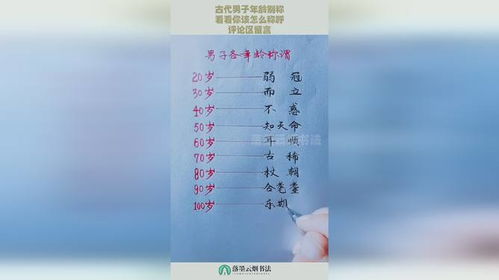 古代男子年龄别称
看看你该怎么称呼
评论区留言
男子各年龄称谓
20岁 弱冠
30岁 而立
40岁 不惑
50岁 知天命
60岁 耳顺
70岁 古稀
80岁 杖朝
90岁
100岁 乐期
落墨云烟书法